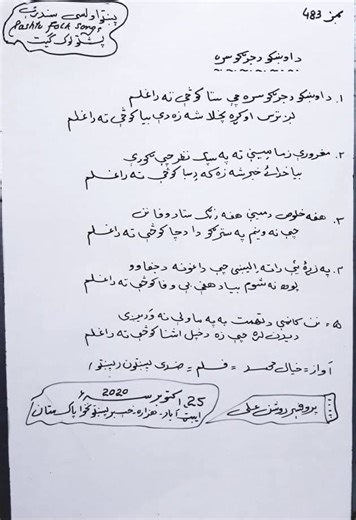 نمبز 483
پښتو اولسي سندرې
Pashto Folk Songs
پشتو لوک گیت
د اوښکو د جرګو سره
۱. د اوښکو د جرګو سره چې ستا کوڅې ته راغلم
لږ ترس اوکړه پخلا شه زه دې بيا کوڅې ته راغلم
۲. مغرورې زما مينې ته په سپک نظر چې ګورې
بيا خدائے خبر شه زه که ستا کوڅې ته راغلم
۳. هغه خلوص د مينې هغه رنګ ستا د وفا نن
چې نه وينم په سترګو دا د چا کوڅې ته راغلم
۴. په زړۀ يې راته اليښي چې داغونه د جفا وو
پوهه نه شوم بيا د هغې بې وفا کوڅې ته راغلم
۵ = نن کاضې د تهمت به په ما ولې نه وريږي
ديدن لره چې زه د خپل اشنا کوڅې ته راغلم
آواز = خيال محمد = فلم = ضدي پښتون (پښتو)
25 اکتوبر سنه 2020ء
ایبټ آباد۔ هزاره۔ خیبر پښتونخوا پاکستان
پروفیسر روشن علی